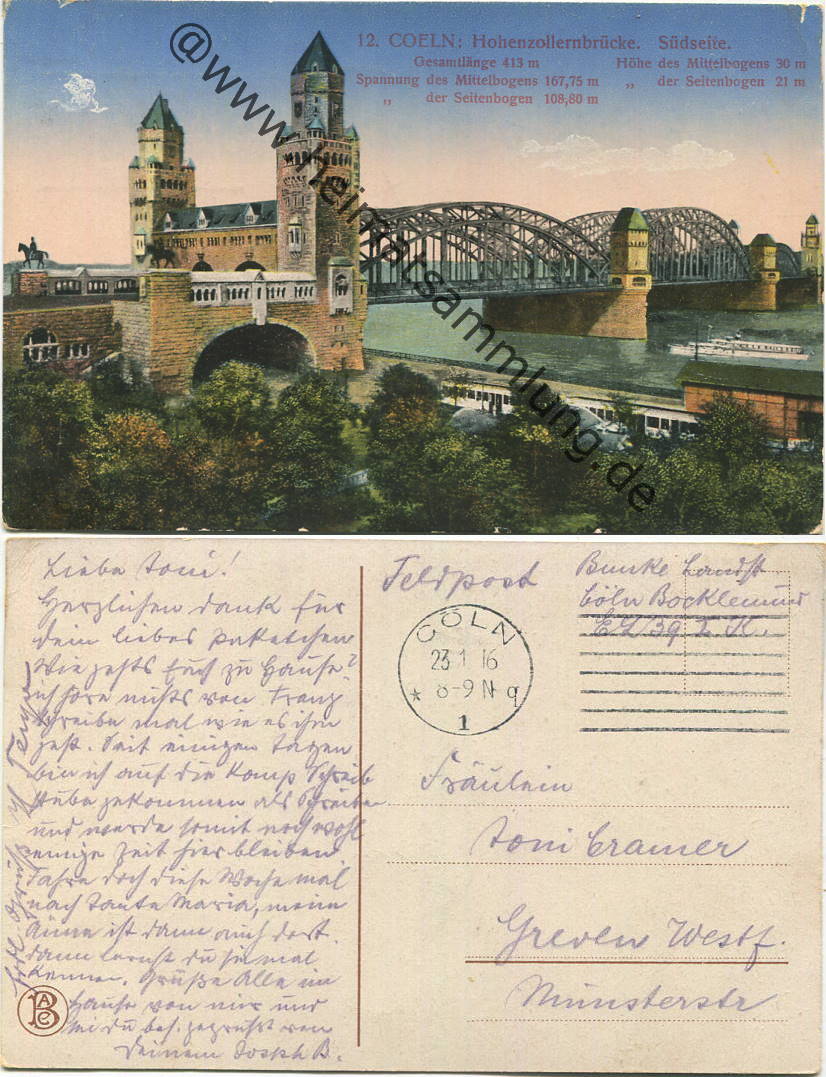 12. COELN: Hohenzollernbrücke. Südseite.
Gesamtlänge 413 m Höhe des Mittelbogens 30 m
Spannung des Mittelbogens 167,75 m „ der Seitenbogen 21 m
„ der Seitenbogen 108,80 m
@www.heimatsammlung.de
Liebe Toni!
Herzlichen Dank für
dein liebes Paketchen
Wie gehts Euch zu Hause?
ich höre nichts von Franz
schreibe mal wie es ihm
geht. Seit einigen Tagen
bin ich auf die Komp Schreib
stube gekommen als Schreiber
und werde somit noch wohl
einige Zeit hier bleiben
Fahre doch diese Woche mal
nach Tante Maria, meine
Änne ist dann auch dort.
dann lernst du sie mal
kennen. Grüße Alle im
Hause von mir und
sei du bes. gegrüßt von
Deinem Joseph B.
Feldpost
Landst
Cöln Bocklemünd
CÖLN
23.1 16
* 8-9 N q
1
Fräulein
Toni Cramer
Greven Westf.
Münsterstr
ABC